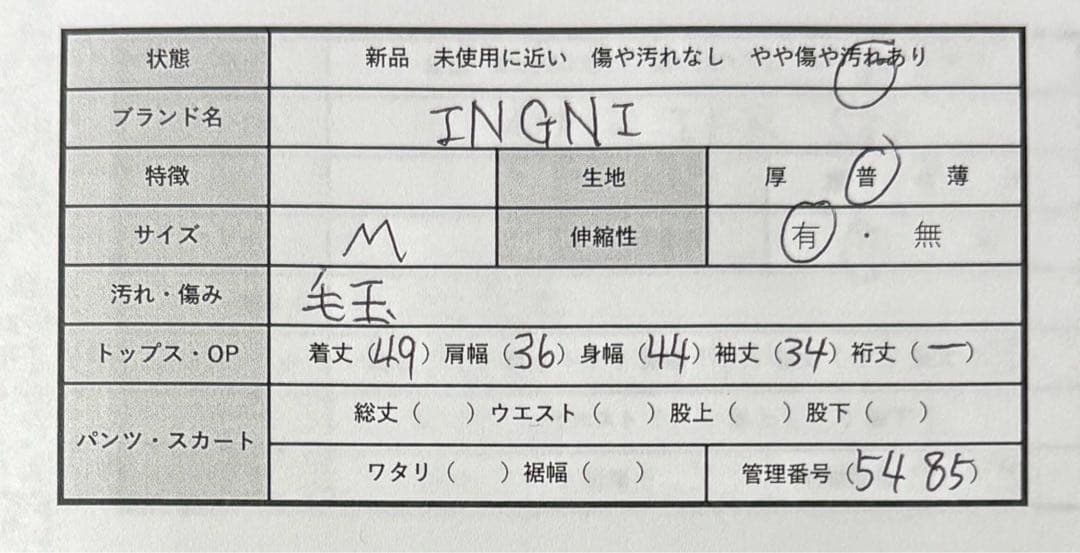 状態 新品 未使用に近い 傷や汚れなし やや傷や汚れあり
ブランド名 INGNI
特徴 生地 厚 普 薄
サイズ M 伸縮性 有 ・ 無
汚れ・傷み 毛玉
トップス・OP 着丈（49）肩幅（36）身幅（44）袖丈（34）裄丈（ー）
パンツ・スカート 総丈（ ）ウエスト（ ）股上（ ）股下（ ）
ワタリ（ ）裾幅（ ） 管理番号（5485）